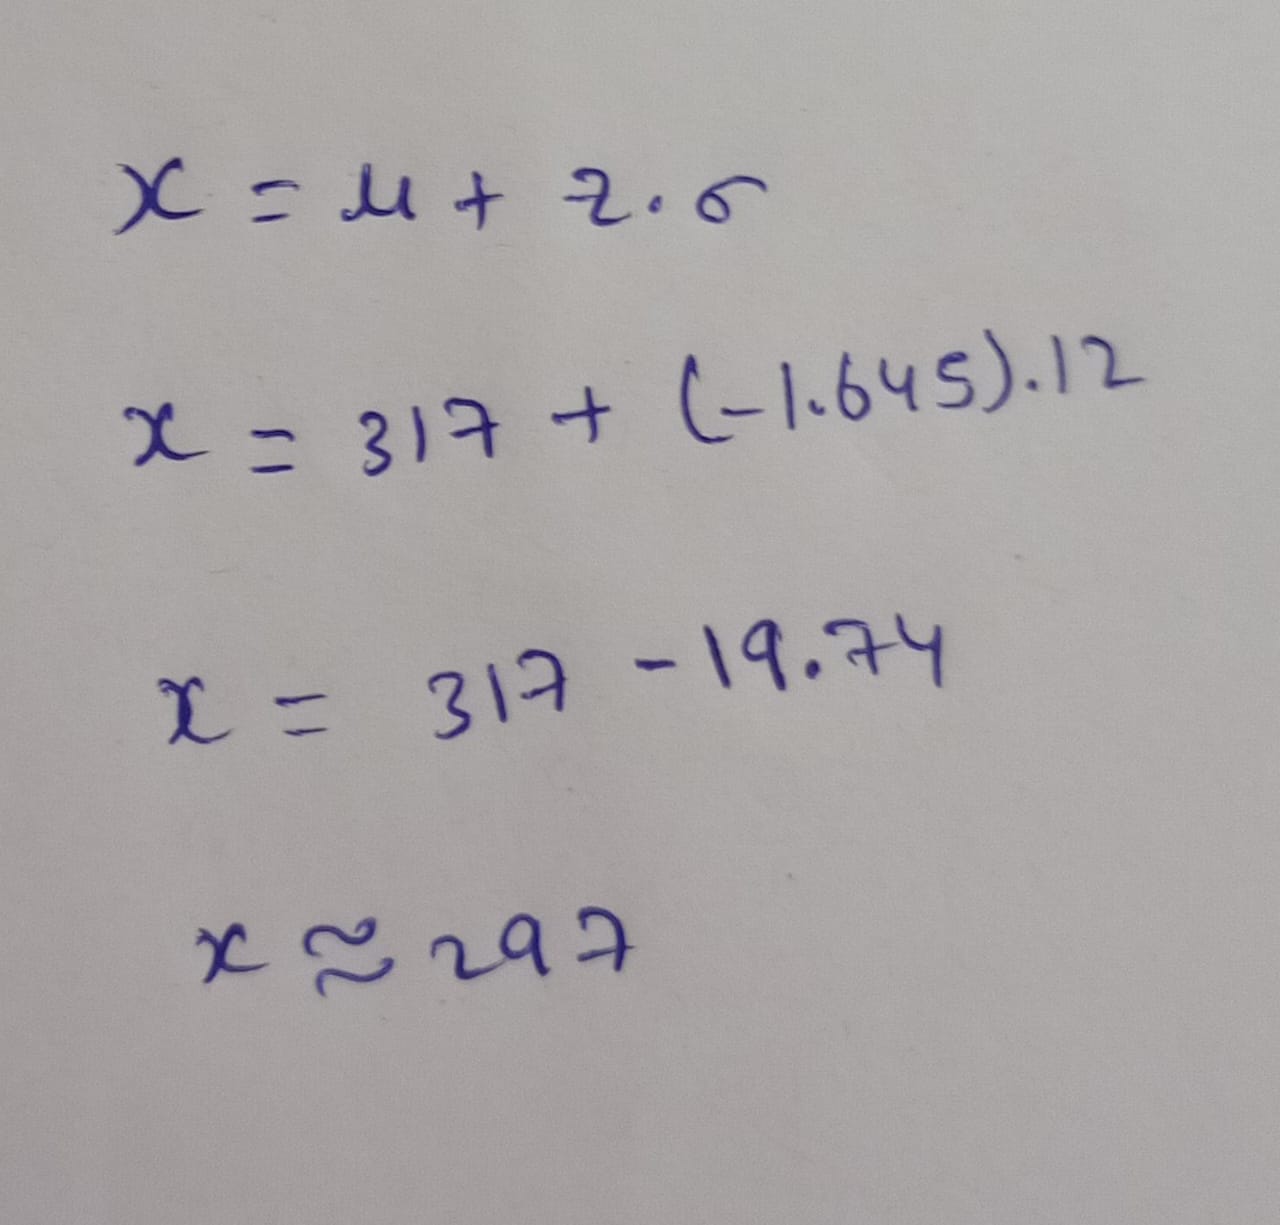 x = μ + z.σ
x = 317 + (-1.645).12
x = 317 - 19.74
x ≈ 297